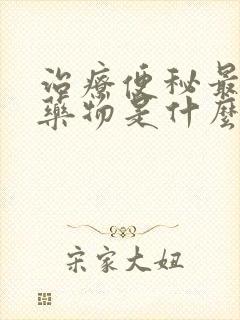 治療便秘最
藥物是什麼
宋家大姐